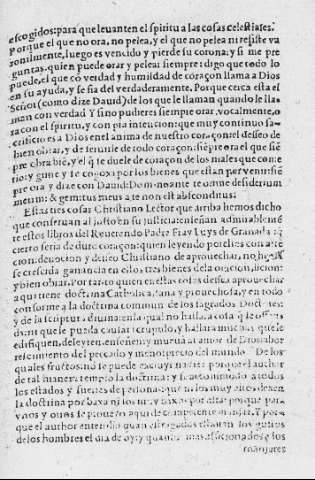 escogidos: para que leuanten el spiritu a las cosas celestiales.
Porque el que no ora, no pelea, y el que no pelea ni resiste va
ronilmente, luego es vencido y pierde su corona: y si me pre
guntas, quien puede orar y pelear siempre: digo que todo lo
puede, el que cō verdad y humildad de coraçon llama a Dios
en su ayuda, y se fia del verdaderamente. Porque cerca esta el
Señor (como dize Dauid) de los que le llaman quando le lla-
man con verdad Y si no pudieres siempre orar, vocalmente, o
ra con el spiritu, y con pia intencion: que muy continuo sa-
crificio es a Dios en el anima de nuestro coraçon el desseo de
bien obrar, y de seruirle de todo coraçon: siēpre ora el que siē
pre obra biē, y el q̄ te duele de coraçon de los males que come
tio: y gime y por los bienes que estan por venir: siē
pre ora y dize con Dauid: Domine ante te omne desiderium
meum: & gemitus meus a te non est absconditus:
Estas tres cosas Christiano Lector que arriba hemos dicho
que conseruan al justo en su justicia: enseñan admirableme
te estos libros del Reuerendo Padre Fray Luys de Granada: q̄
cierto seria de duro coraçon: quien leyendo por ellos con atē
cion: deuocion y desseo Christiano de aprouechar, no
se crescida ganancia en ellos tres bienes de la oracion,
y bien obrar. Por tanto quien en estas cosas dessea aprouechar
aqui tiene doctrina Catholica, sana y prouechosa, y en todo
conforme a la doctrina commun de los sagrados Doctores:
y de la scriptura diuina: en la qual no hallara cosa
que le pueda causar scrupulo, y hallara muchas que le
edifiquen, deleyten, enseñen y mueuā al amor de Dios: abor
rescimiento del peccado y menosprecio del mundo De los
quales fructos: no le puede excluyr nadie: porque el author
de tal manera templo la doctrina: y la acomodo a todos
los estados y suertes de personas: que ni los muy dexen
la doctrina por baxa ni los muy baxos por alta: porque para
vnos y otros se prouee aqui de competente manjar. Y por
que el author entendio quan estragados estauan los gustos
de los hombres el dia de oy: y quanto mas afficionados a los
manjares